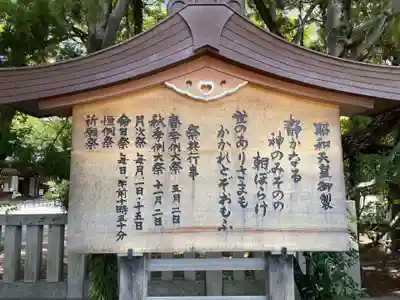 昭和天皇御製
静かなる
神のみそのの
朝ぼらけ
世のありさまも
かかれとぞおもふ
祭典行事
春季例大祭 五月二日
秋季例大祭 十一月二日
月次祭 毎月一日・十五日
恒例祭
命日祭 毎日 午前十時三十分
祈願祭